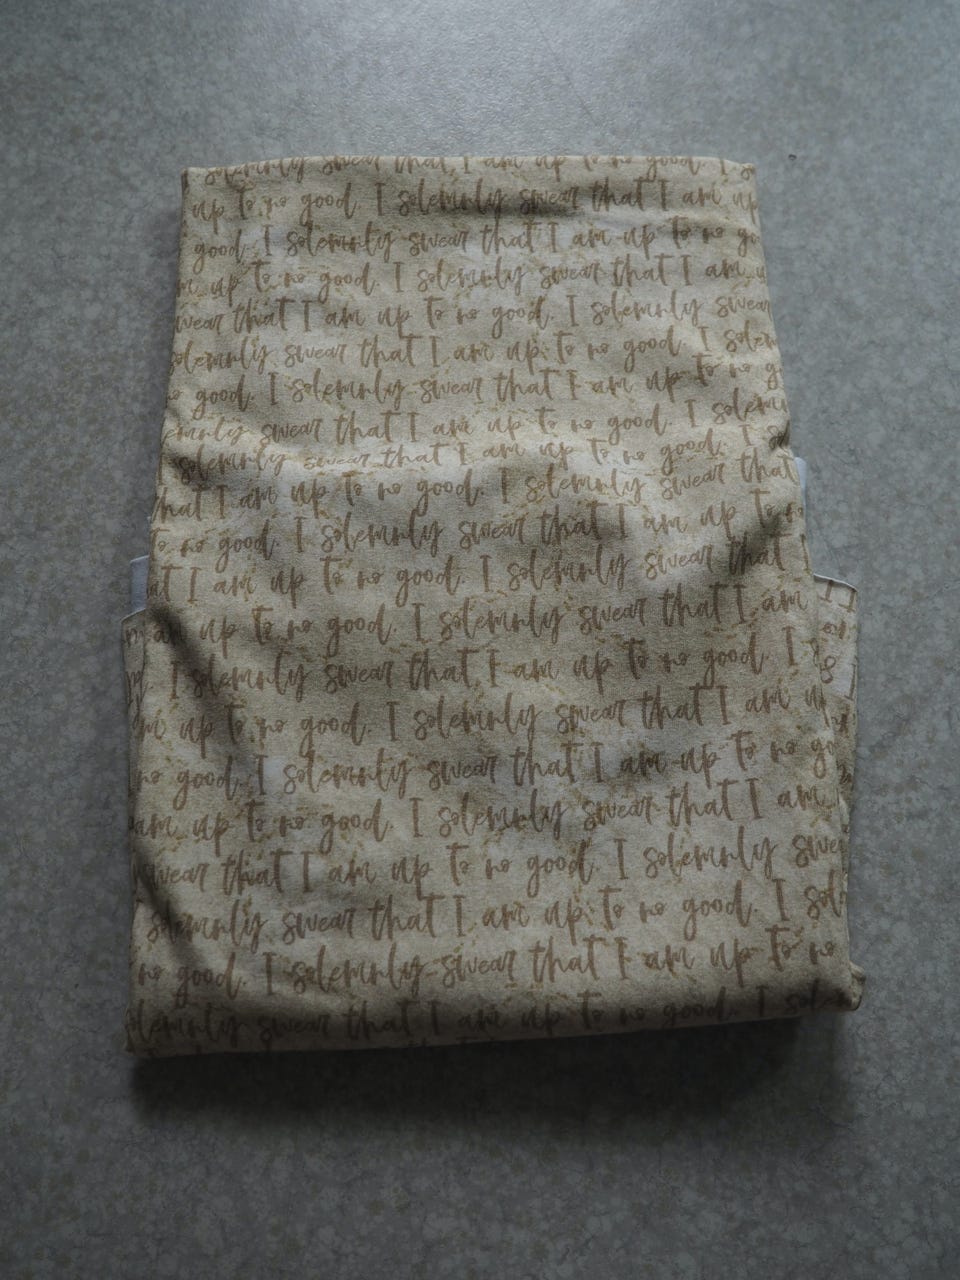 solemnly swear that I am up to no good. I s
up to no good. I solemnly swear that I am up
good. I solemnly swear that I am up to no go
m up to no good. I solemnly swear that I am u
wear that I am up to no good. I solemnly swear
solemnly swear that I am up to no good. I solem
o good. I solemnly swear that I am up to no g
emnly swear that I am up to no good. I solemn
solemnly swear that I am up to no good. I s
hat I am up to no good. I solemnly swear that
to no good. I solemnly swear that I am up to n
at I am up to no good. I solemnly swear that I
am up to no good. I solemnly swear that I am
I solemnly swear that I am up to no good. I
m up to no good. I solemnly swear that I am u
no good. I solemnly swear that I am up to no go
am up to no good. I solemnly swear that I am
swear that I am up to no good. I solemnly swea
solemnly swear that I am up to no good. I sol
no good. I solemnly swear that I am up to no
olemnly swear that I am up to no good. I solem